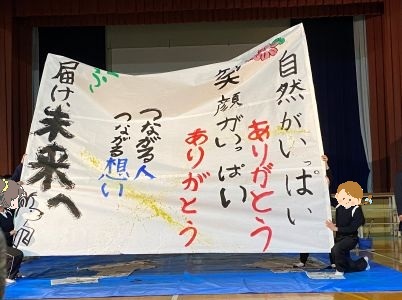 自然がいっぱい
ありがとう
笑顔がいっぱい
ありがとう
つながる人
つながる想い
届け、未来へ